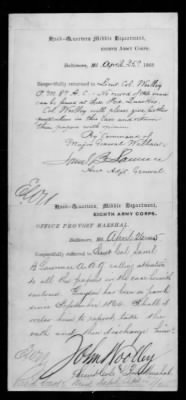 Head-Quarters Middle Department,
EIGHTH ARMY CORPS.
Baltimore, Md. April 25th 1865
Respectfully returned to Lieut Col. Woolley
P. M. 8th A. C. - No record of this case
can be found at these Head Quarters.
Col. Woolley will please give further
in this case and return
these papers with
By Command of
Major General Wallace
Saml B Lawrence
Asst Adjt. General
Head-Quarters Middle Department,
EIGHTH ARMY CORPS.
OFFICE PROVOST MARSHAL
Baltimore, Md. April
Respectfully returned to Lieut Col. Saml
B Lawrence A.A.G calling attention
to all the papers in the case herewith
enclosed. has been in
since September 1864. Shall I
order him to take the
oath and then discharge him
John Woolley
Lieut Col & Pro Marshal